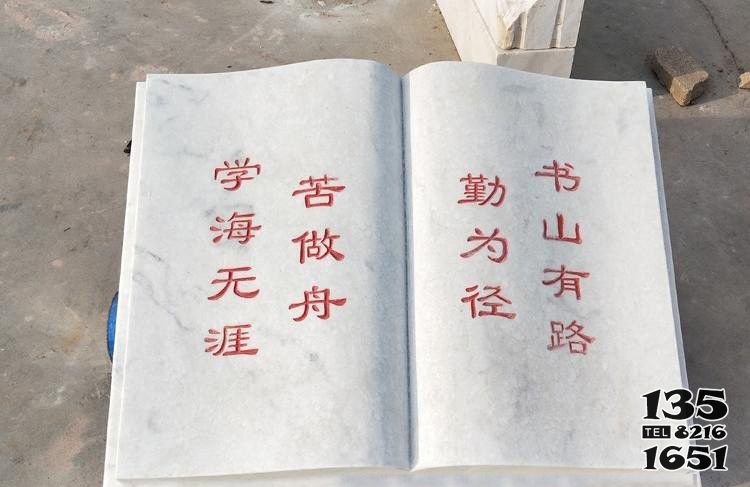 书山有路
勤为径
学海无涯
苦做舟
135
TEL 8216
1651